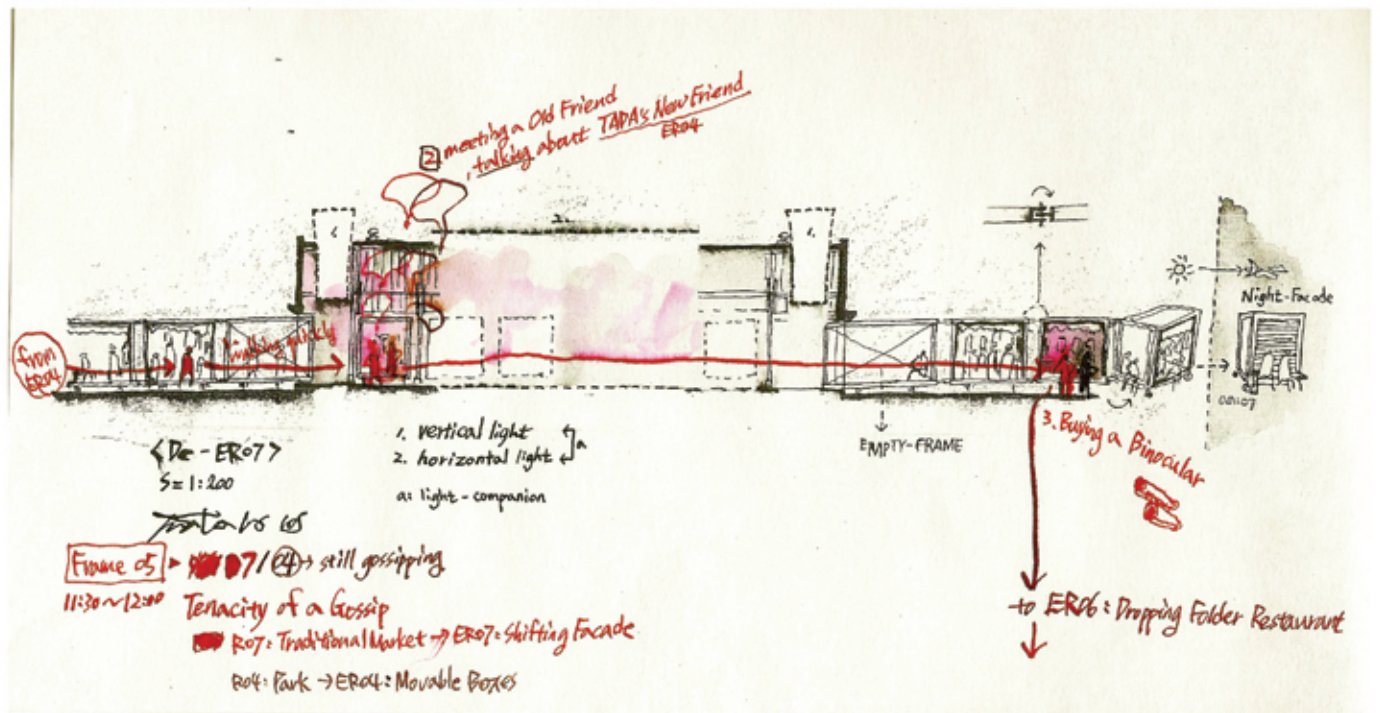 2 meeting a Old Friend
, talking about TADA's New Friend
ER04
2.
1.
1.
Night-Facade
from
ER04
1. walking quickly
EMPTY-FRAME
3. Buying a Binocular
<De-ER07>
S=1:200
1. vertical light
2. horizontal light
a
a: light-companion
Frame 05 ▸ 07/04 → still gossipping
11:30~12:00
Tenacity of a Gossip
R07: Traditional Market → ER07: Shifting Facade
R04: Park → ER04: Movable Boxes
to ER06: Dropping Folder Restaurant